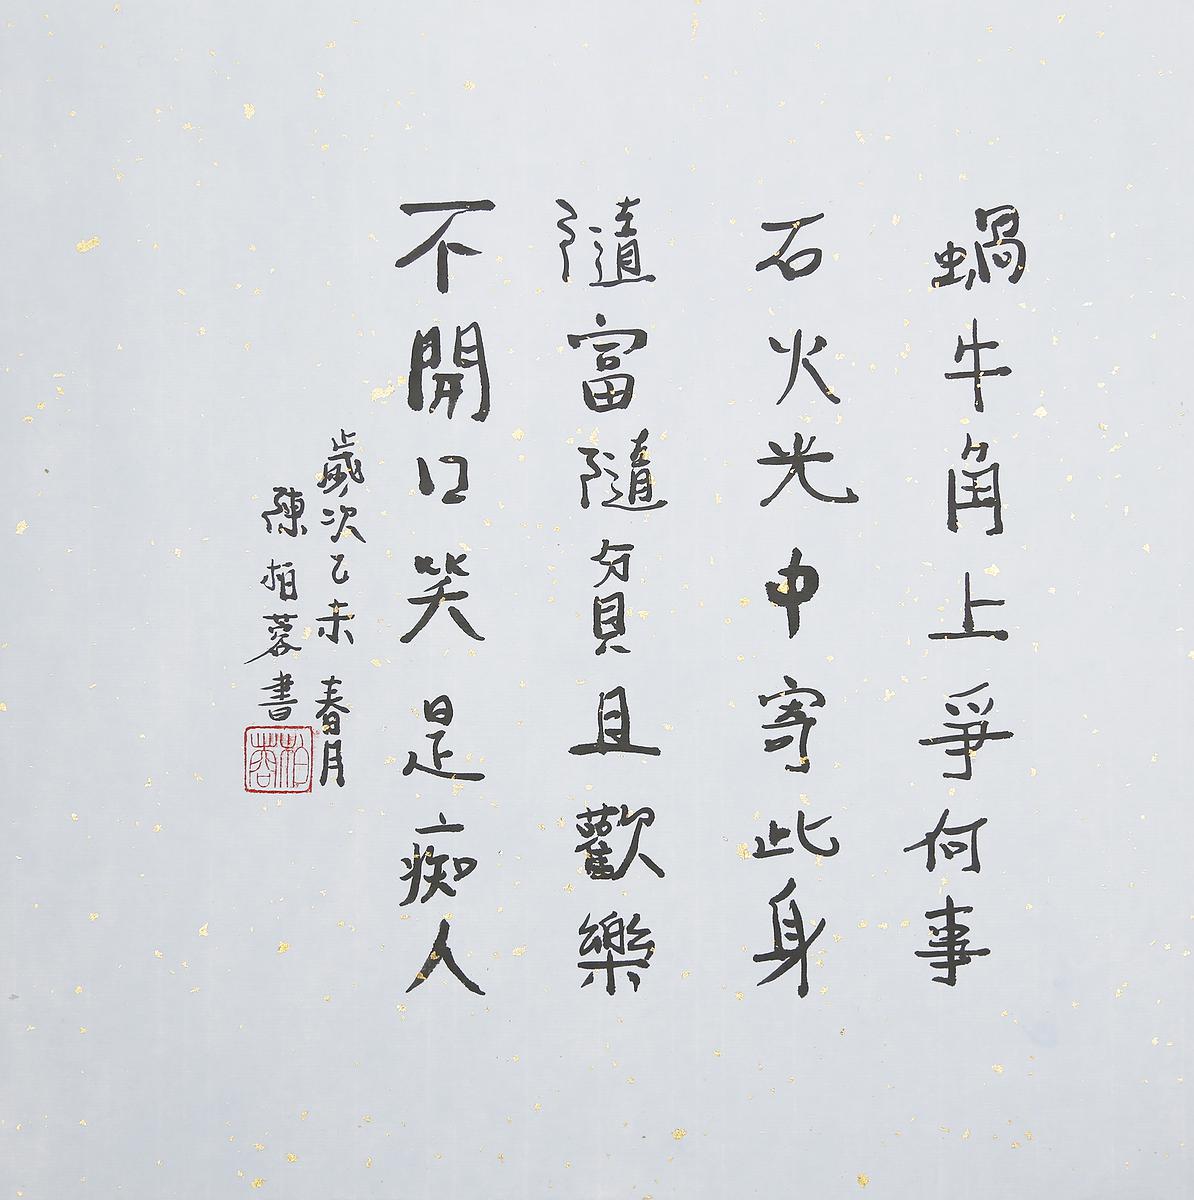 蝸牛角上爭何事
石火光中寄此身
隨富隨貧且歡樂
不開口笑是痴人
歲次乙未春月
陳柏蓉書
柏蓉